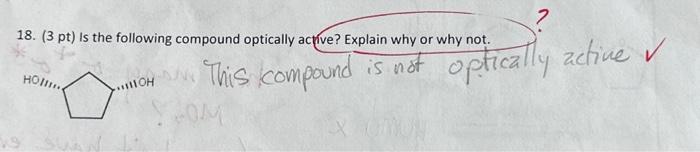 ?
18. (3 pt) Is the following compound optically active? Explain why or why not.
This compound is not optically active ✓
HO OH